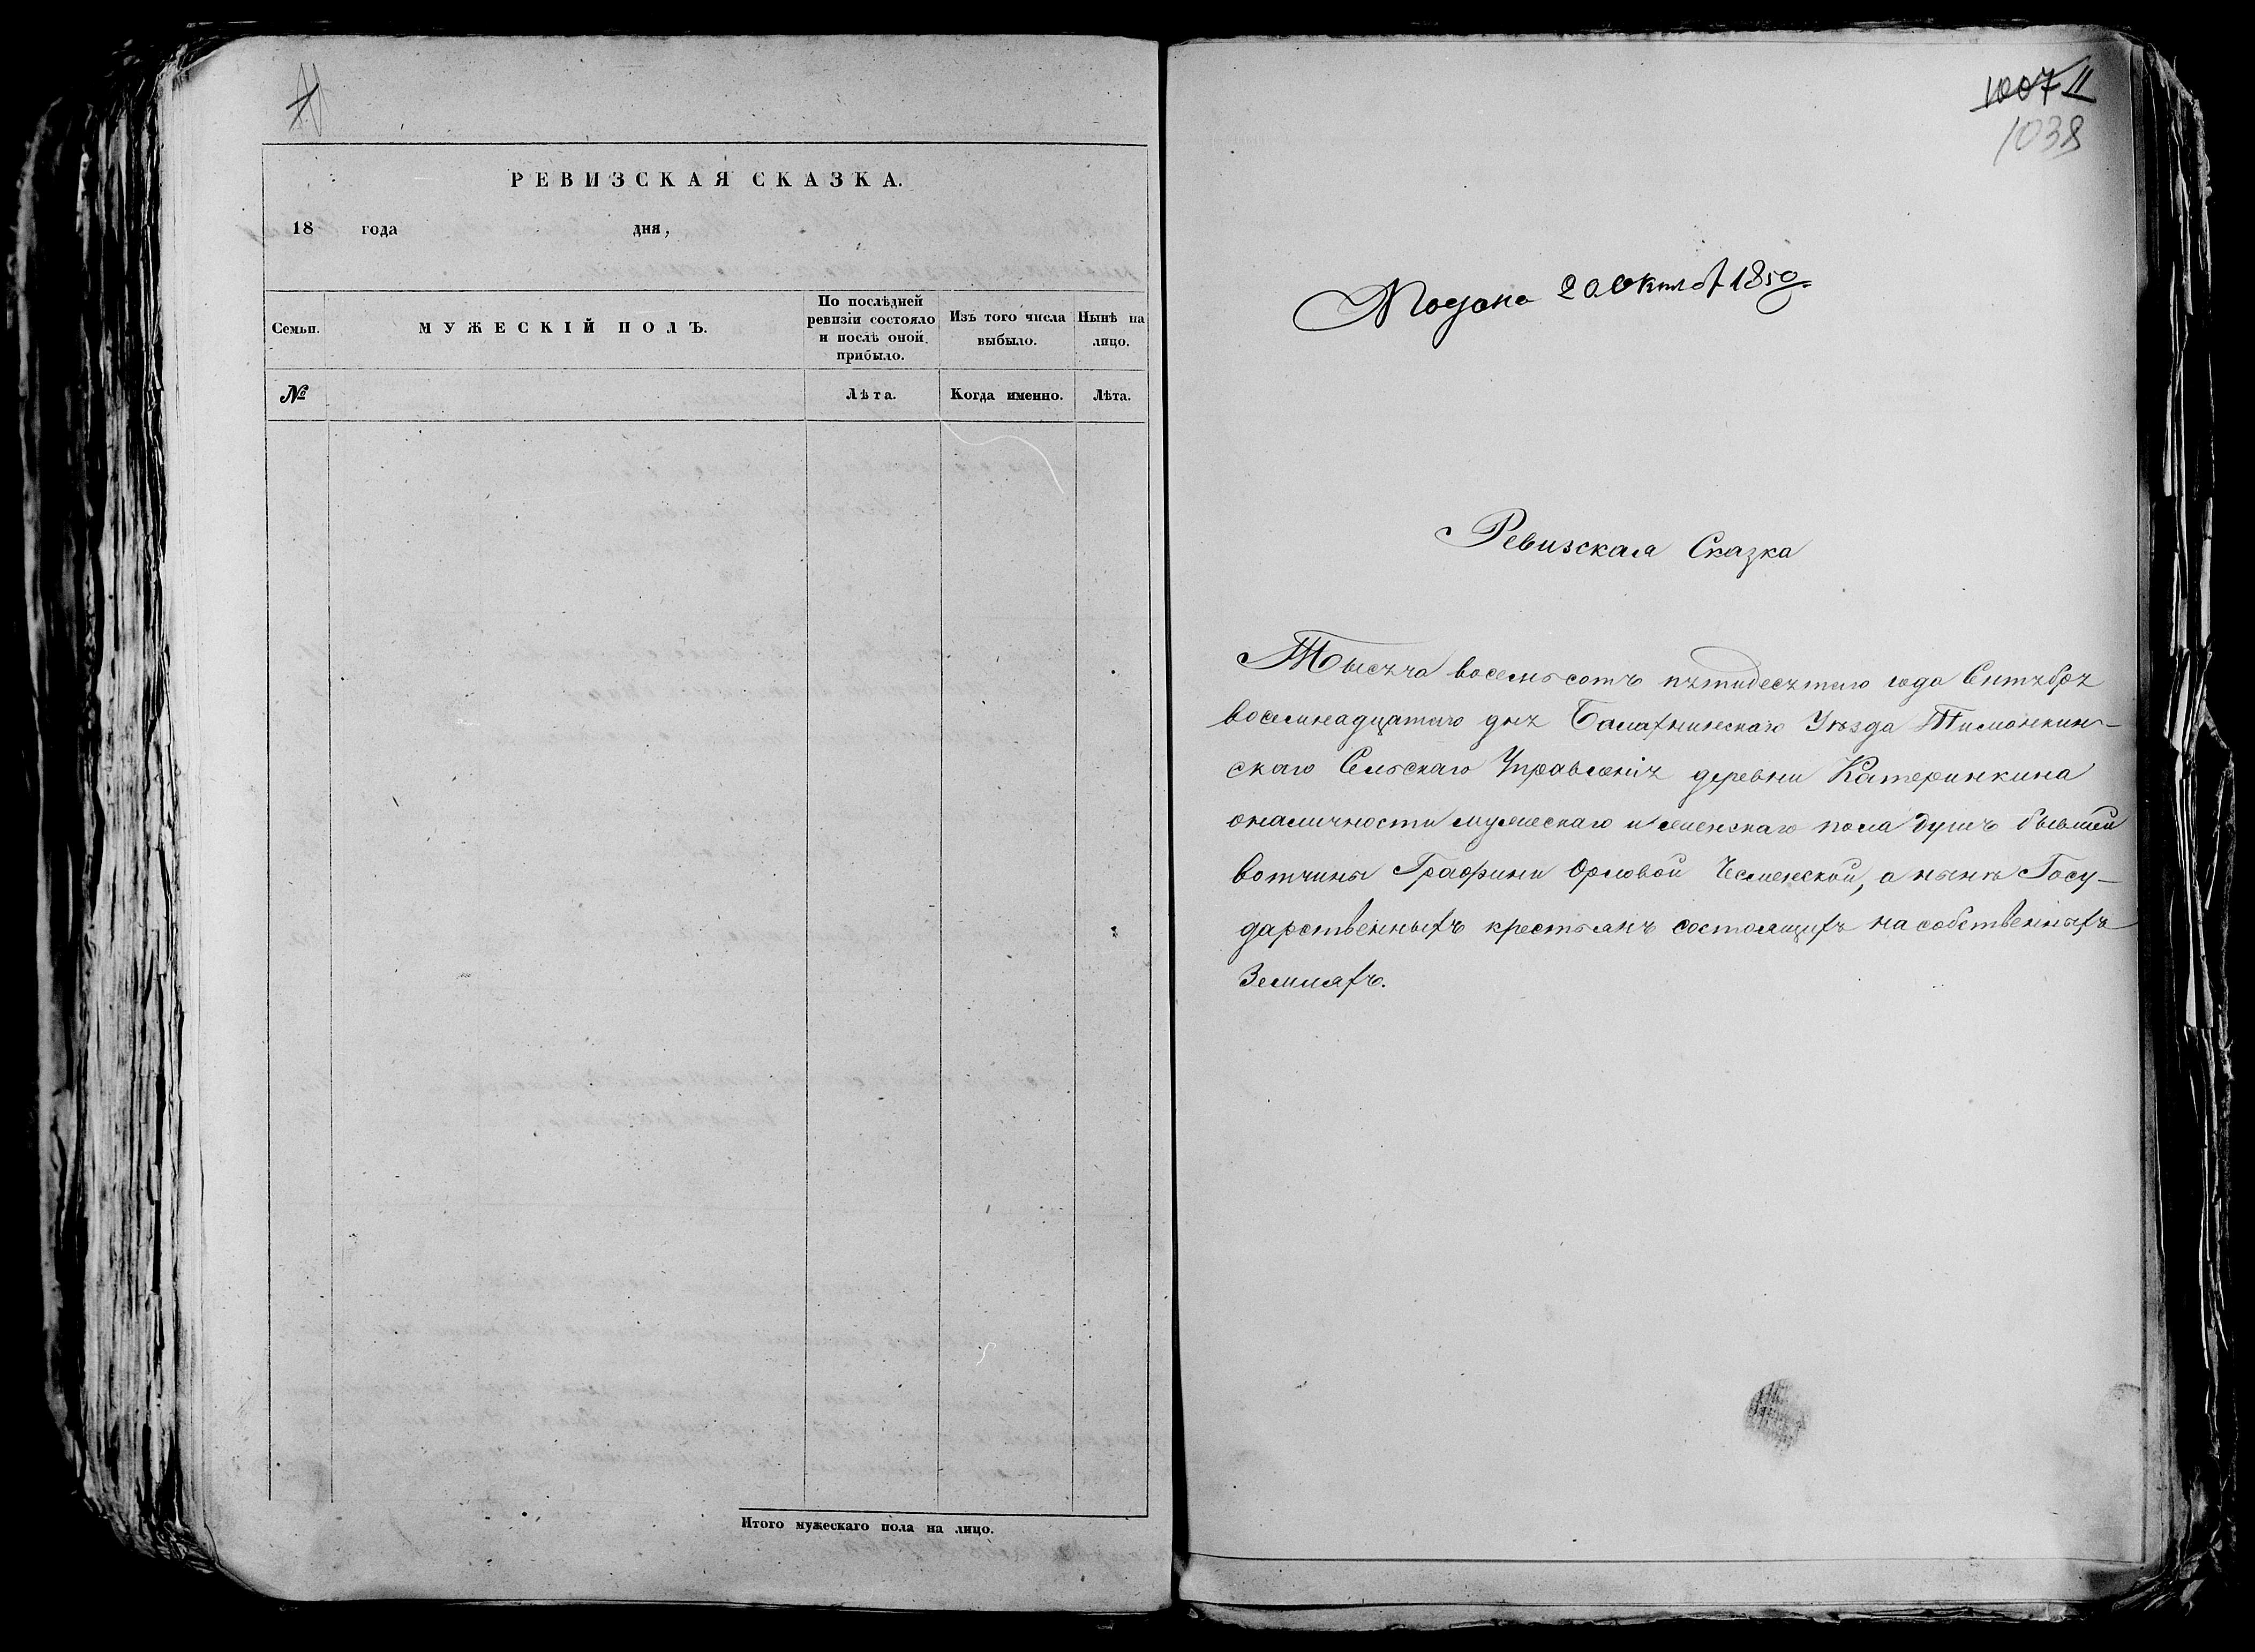 РЕВИЗСКАЯ СКАЗКА.
18 года дня,
Семьи.
МУЖЕСКІЙ ПОЛЪ.
По послѣдней
ревизіи состояло
и послѣ оной
прибыло.
Изъ того числа
выбыло.
Нынѣ на
лицо.
№
Лѣта.
Когда именно.
Лѣта.
Итого мужескаго пола на лицо.
1007 11
1038
Подана 20 Октяб 1850
Ревизская Сказка
Тысяча восемьсотъ пятидесятаго года Сентября
восемнадцатаго дня Балахнинскаго Уѣзда Тимонкин-
скаго Сельскаго Управленія деревни Катеринкина
о наличности мужескаго и женскаго пола душъ бывшей
вотчины Графини Орловой Чесменской, а нынѣ Госу-
дарственныхъ крестьянъ состоящихъ на собственныхъ
Земляхъ.